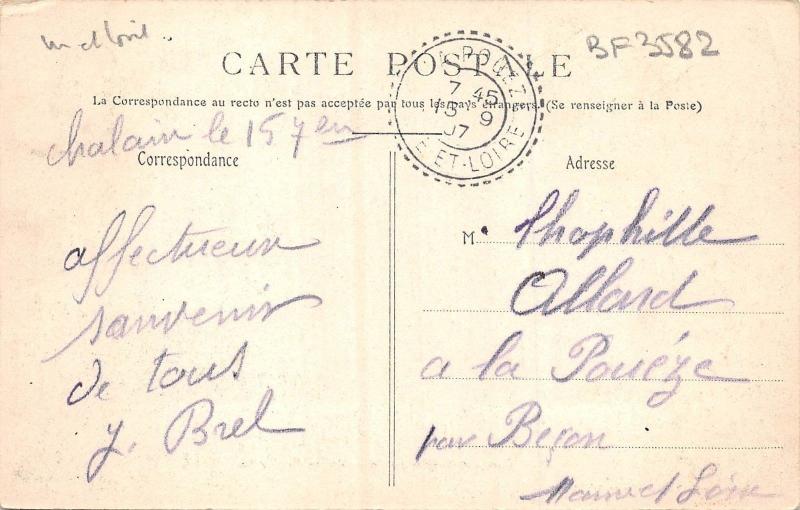 BF3582
CARTE POSTALE
La Correspondance au recto n'est pas acceptée par tous les pays étrangers. (Se renseigner à la Poste)
POUEZE
7 45
15 9
07
E ET-LOIRE
chalain le 15 7
Correspondance
Adresse
affectueux
souvenir
de tous
y. Brel
M. Thophille
Allard
a la Pouéze
par Beçon
Maine et Loire